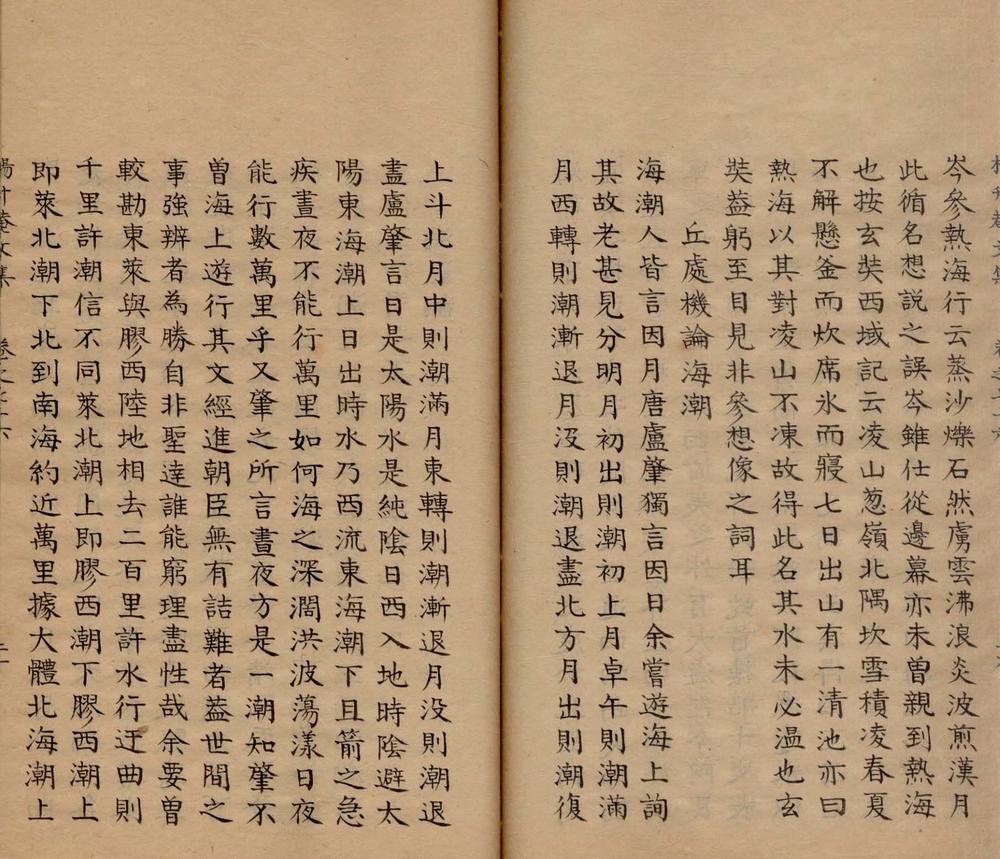 岑參熱海行云蒸沙爍石然虜雲沸浪炎波煎漢月
此循名想説之誤岑雖仕從邊幕亦未曾親到熱海
也按玄奘西域記云凌山葱嶺北隅坎雪積凌春夏
不解懸釜而炊席氷而寢七日出山有一清池亦曰
熱海以其對凌山不凍故得此名其水未必温也玄
奘葢躬至目見非參想像之詞耳
丘處機論海潮
海潮人皆言因月唐盧肇獨言因日余嘗遊海上詢
其故老甚見分明月初出則潮初上月卓午則潮滿
月西轉則潮漸退月没則潮退盡北方月出則潮復
上斗北月中則潮滿月東轉則潮漸退月没則潮退
盡盧肇言日是太陽水是純陰日西入地時陰避太
陽東海潮上日出時水乃西流東海潮下且箭之急
疾晝夜不能行萬里如何海之深濶洪波蕩漾日夜
能行數萬里乎又肇之所言晝夜方是一潮知肇不
曽海上遊行其文經進朝臣無有詰難者葢世間之
事強辨者為勝自非聖達誰能窮理盡性哉余要曽
較勘東萊與膠西陸地相去二百里許水行迂曲則
千里許潮信不同萊北潮上即膠西潮下膠西潮上
即萊北潮下北到南海約近萬里據大體北海潮上